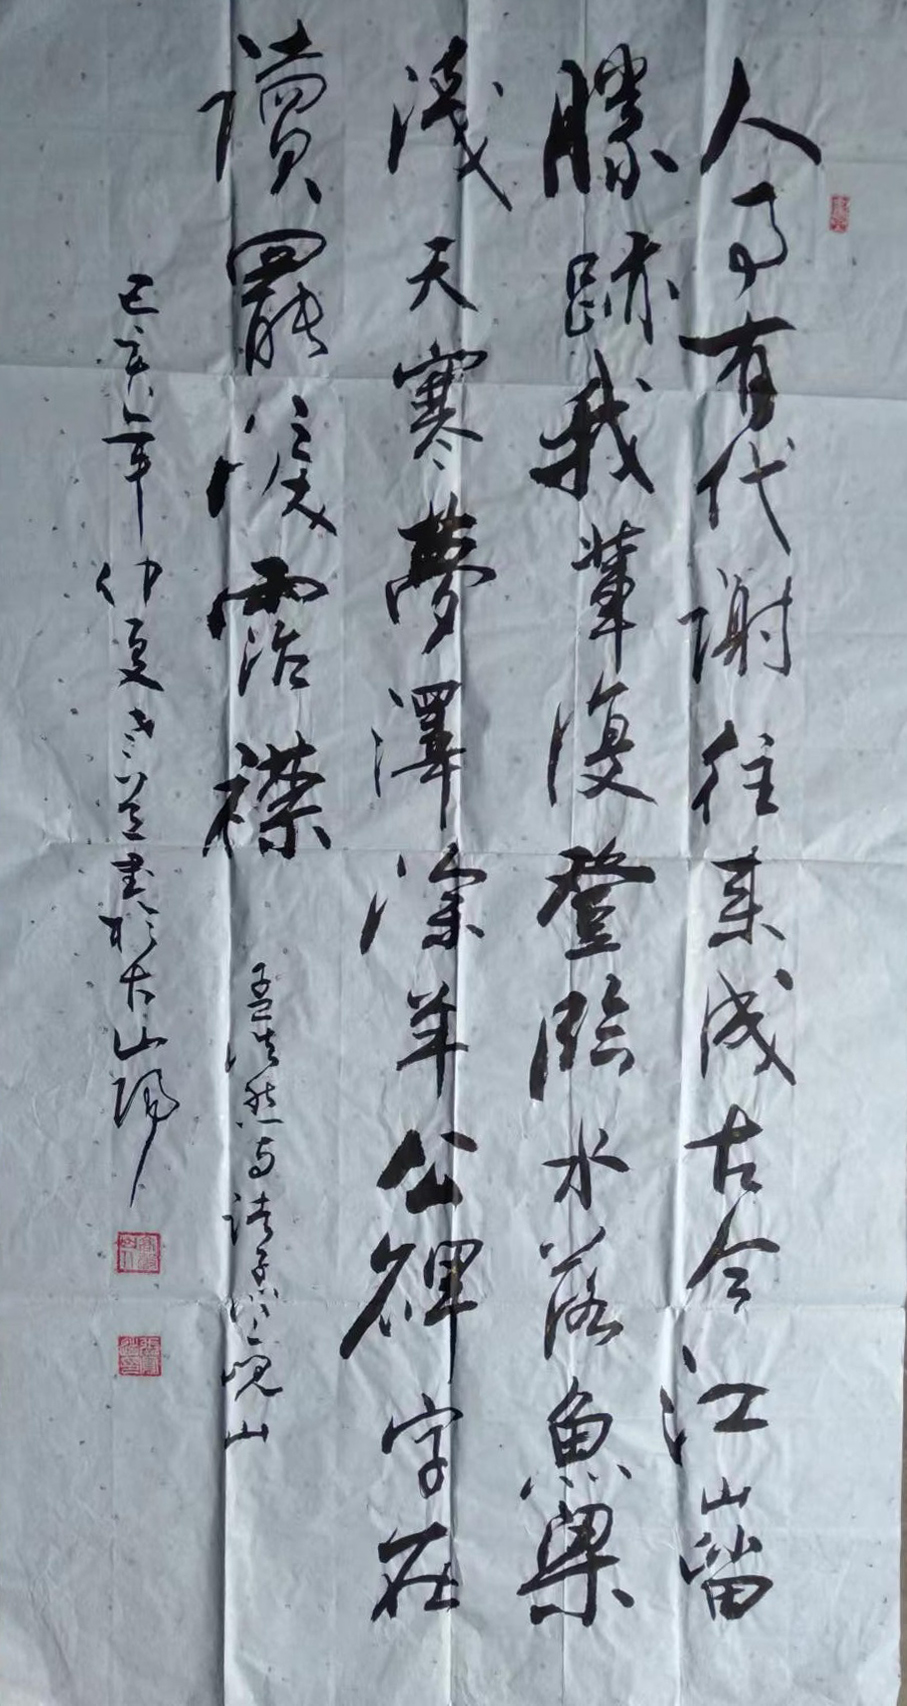 人事有代謝往来成古今江山留
勝跡我輩復登臨水落魚梁
淺天寒夢澤深羊公碑字在
讀罷淚霑襟
孟浩然与諸子登峴山
己亥年仲夏 書於古山陽